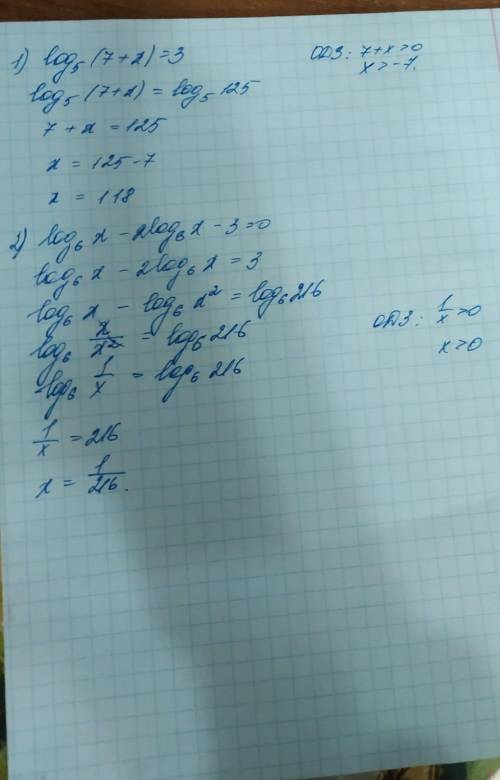 1) log₅(7+x)=3 ОДЗ: 7+x>0
x>-7.
log₅(7+x) = log₅125
7+x = 125
x = 125-7
x = 118
2) log₆x - 2log₆x - 3=0
log₆x - 2log₆x = 3
log₆x - log₆x² = log₆216
log₆ x/x² = log₆216 ОДЗ: 1/x>0
x>0
log₆ 1/x = log₆216
1/x = 216
x = 1/216.